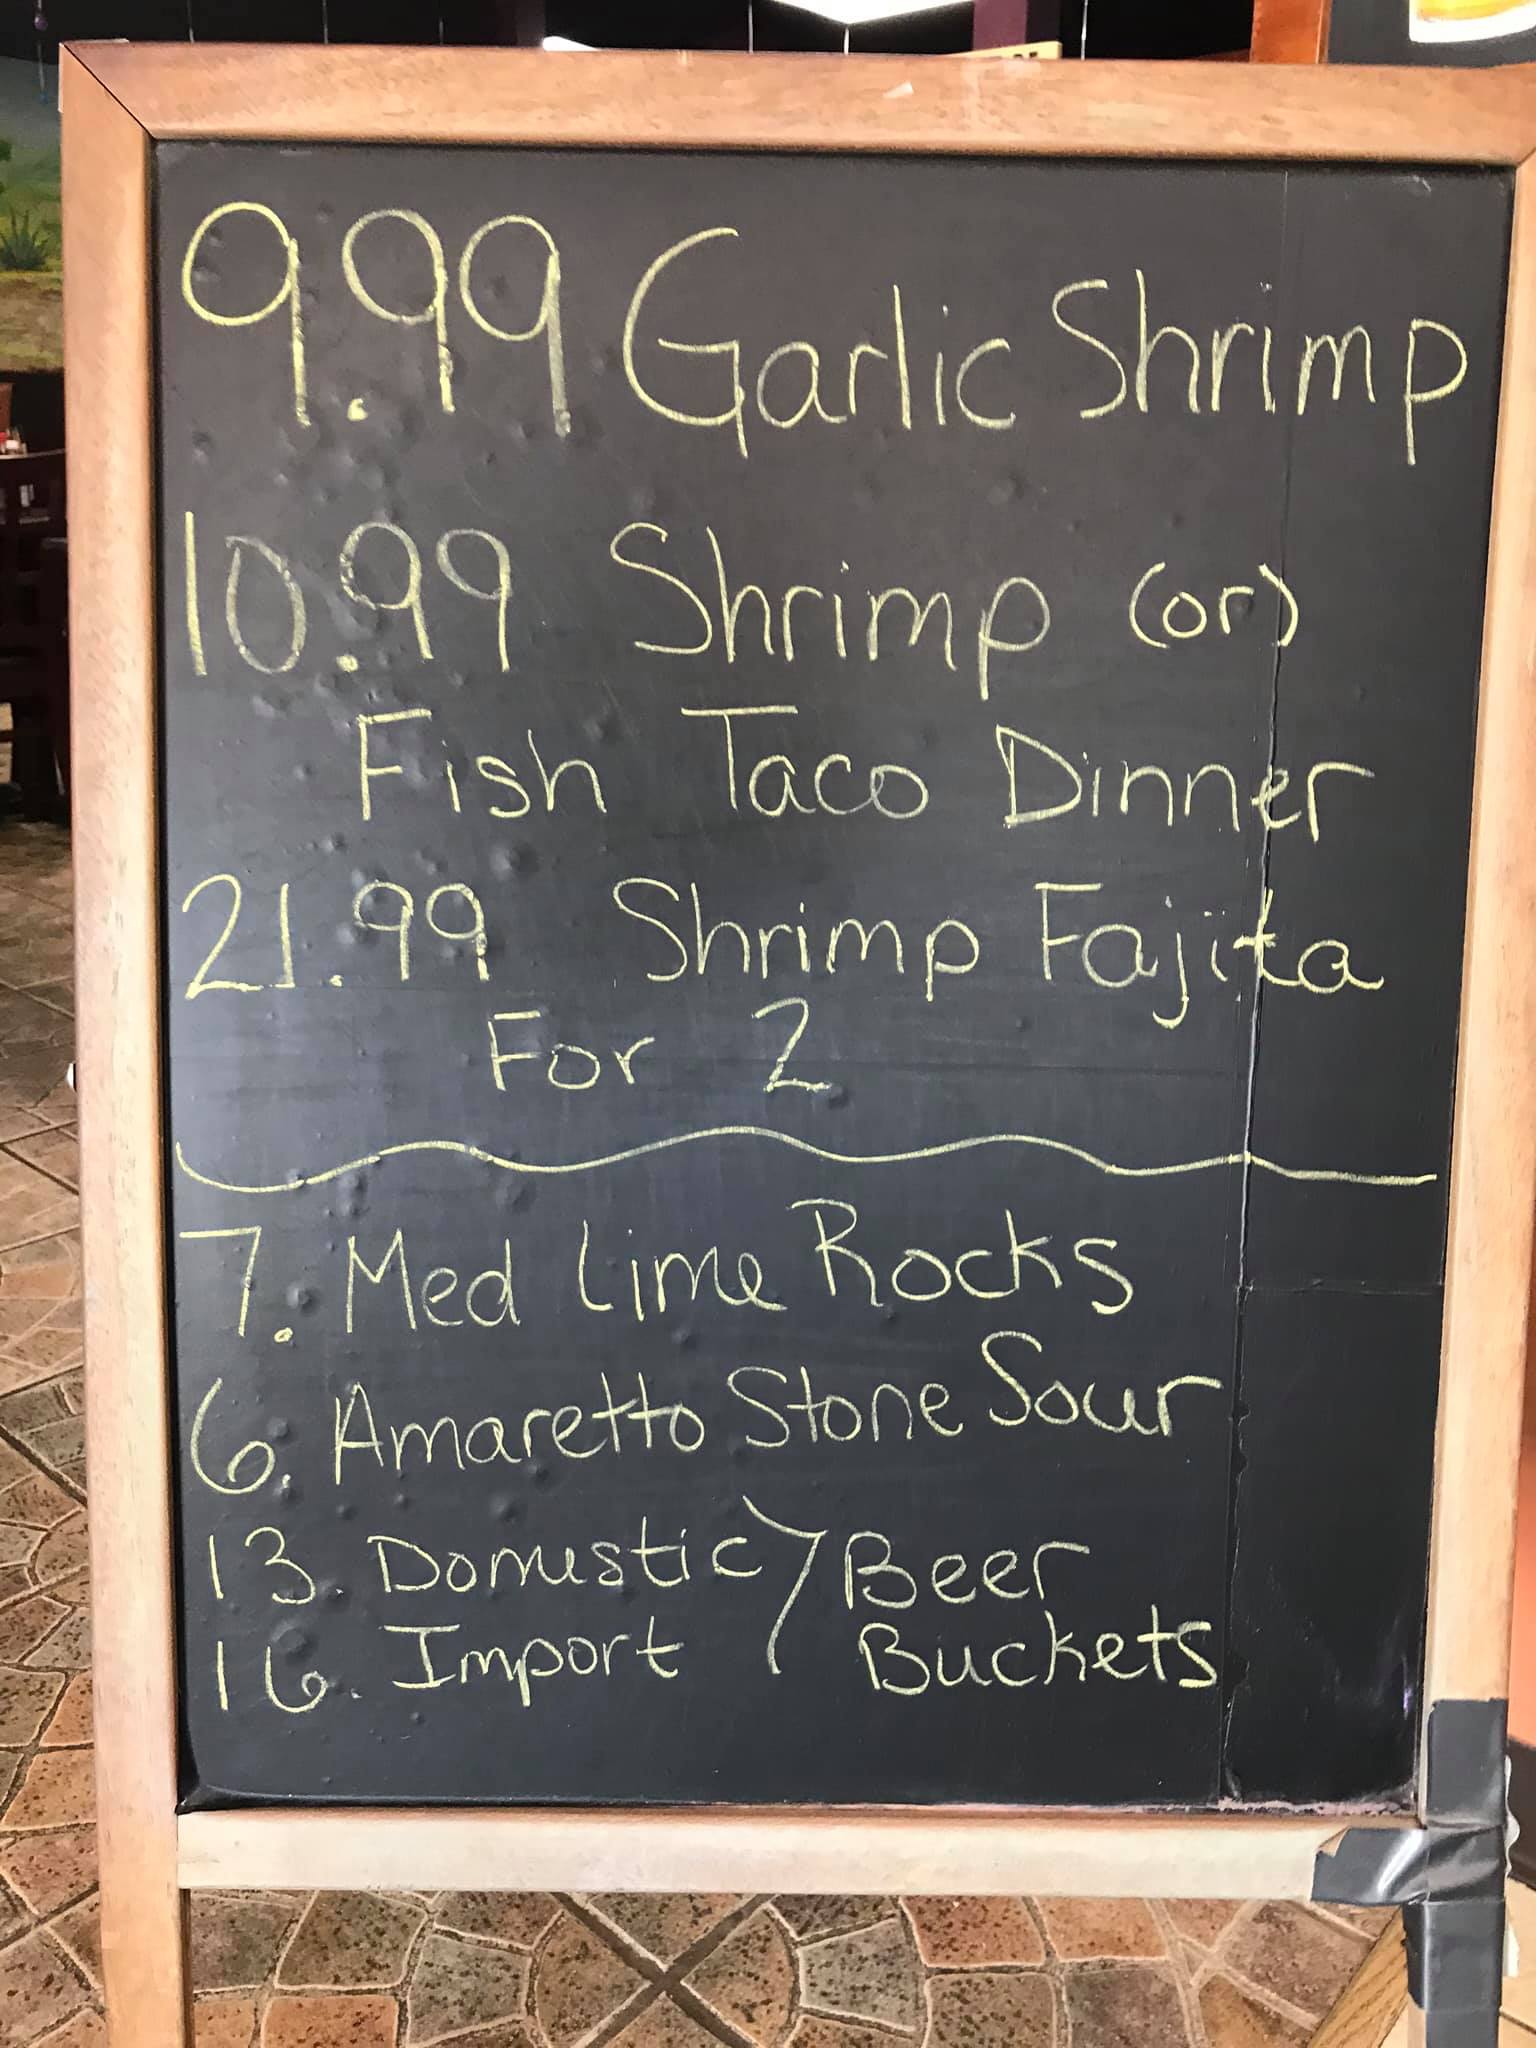 9.99 Garlic Shrimp
10.99 Shrimp (or)
Fish Taco Dinner
21.99 Shrimp Fajita
For 2
7. Med Lime Rocks
6. Amaretto Stone Sour
13. Domestic Beer
16. Import Buckets